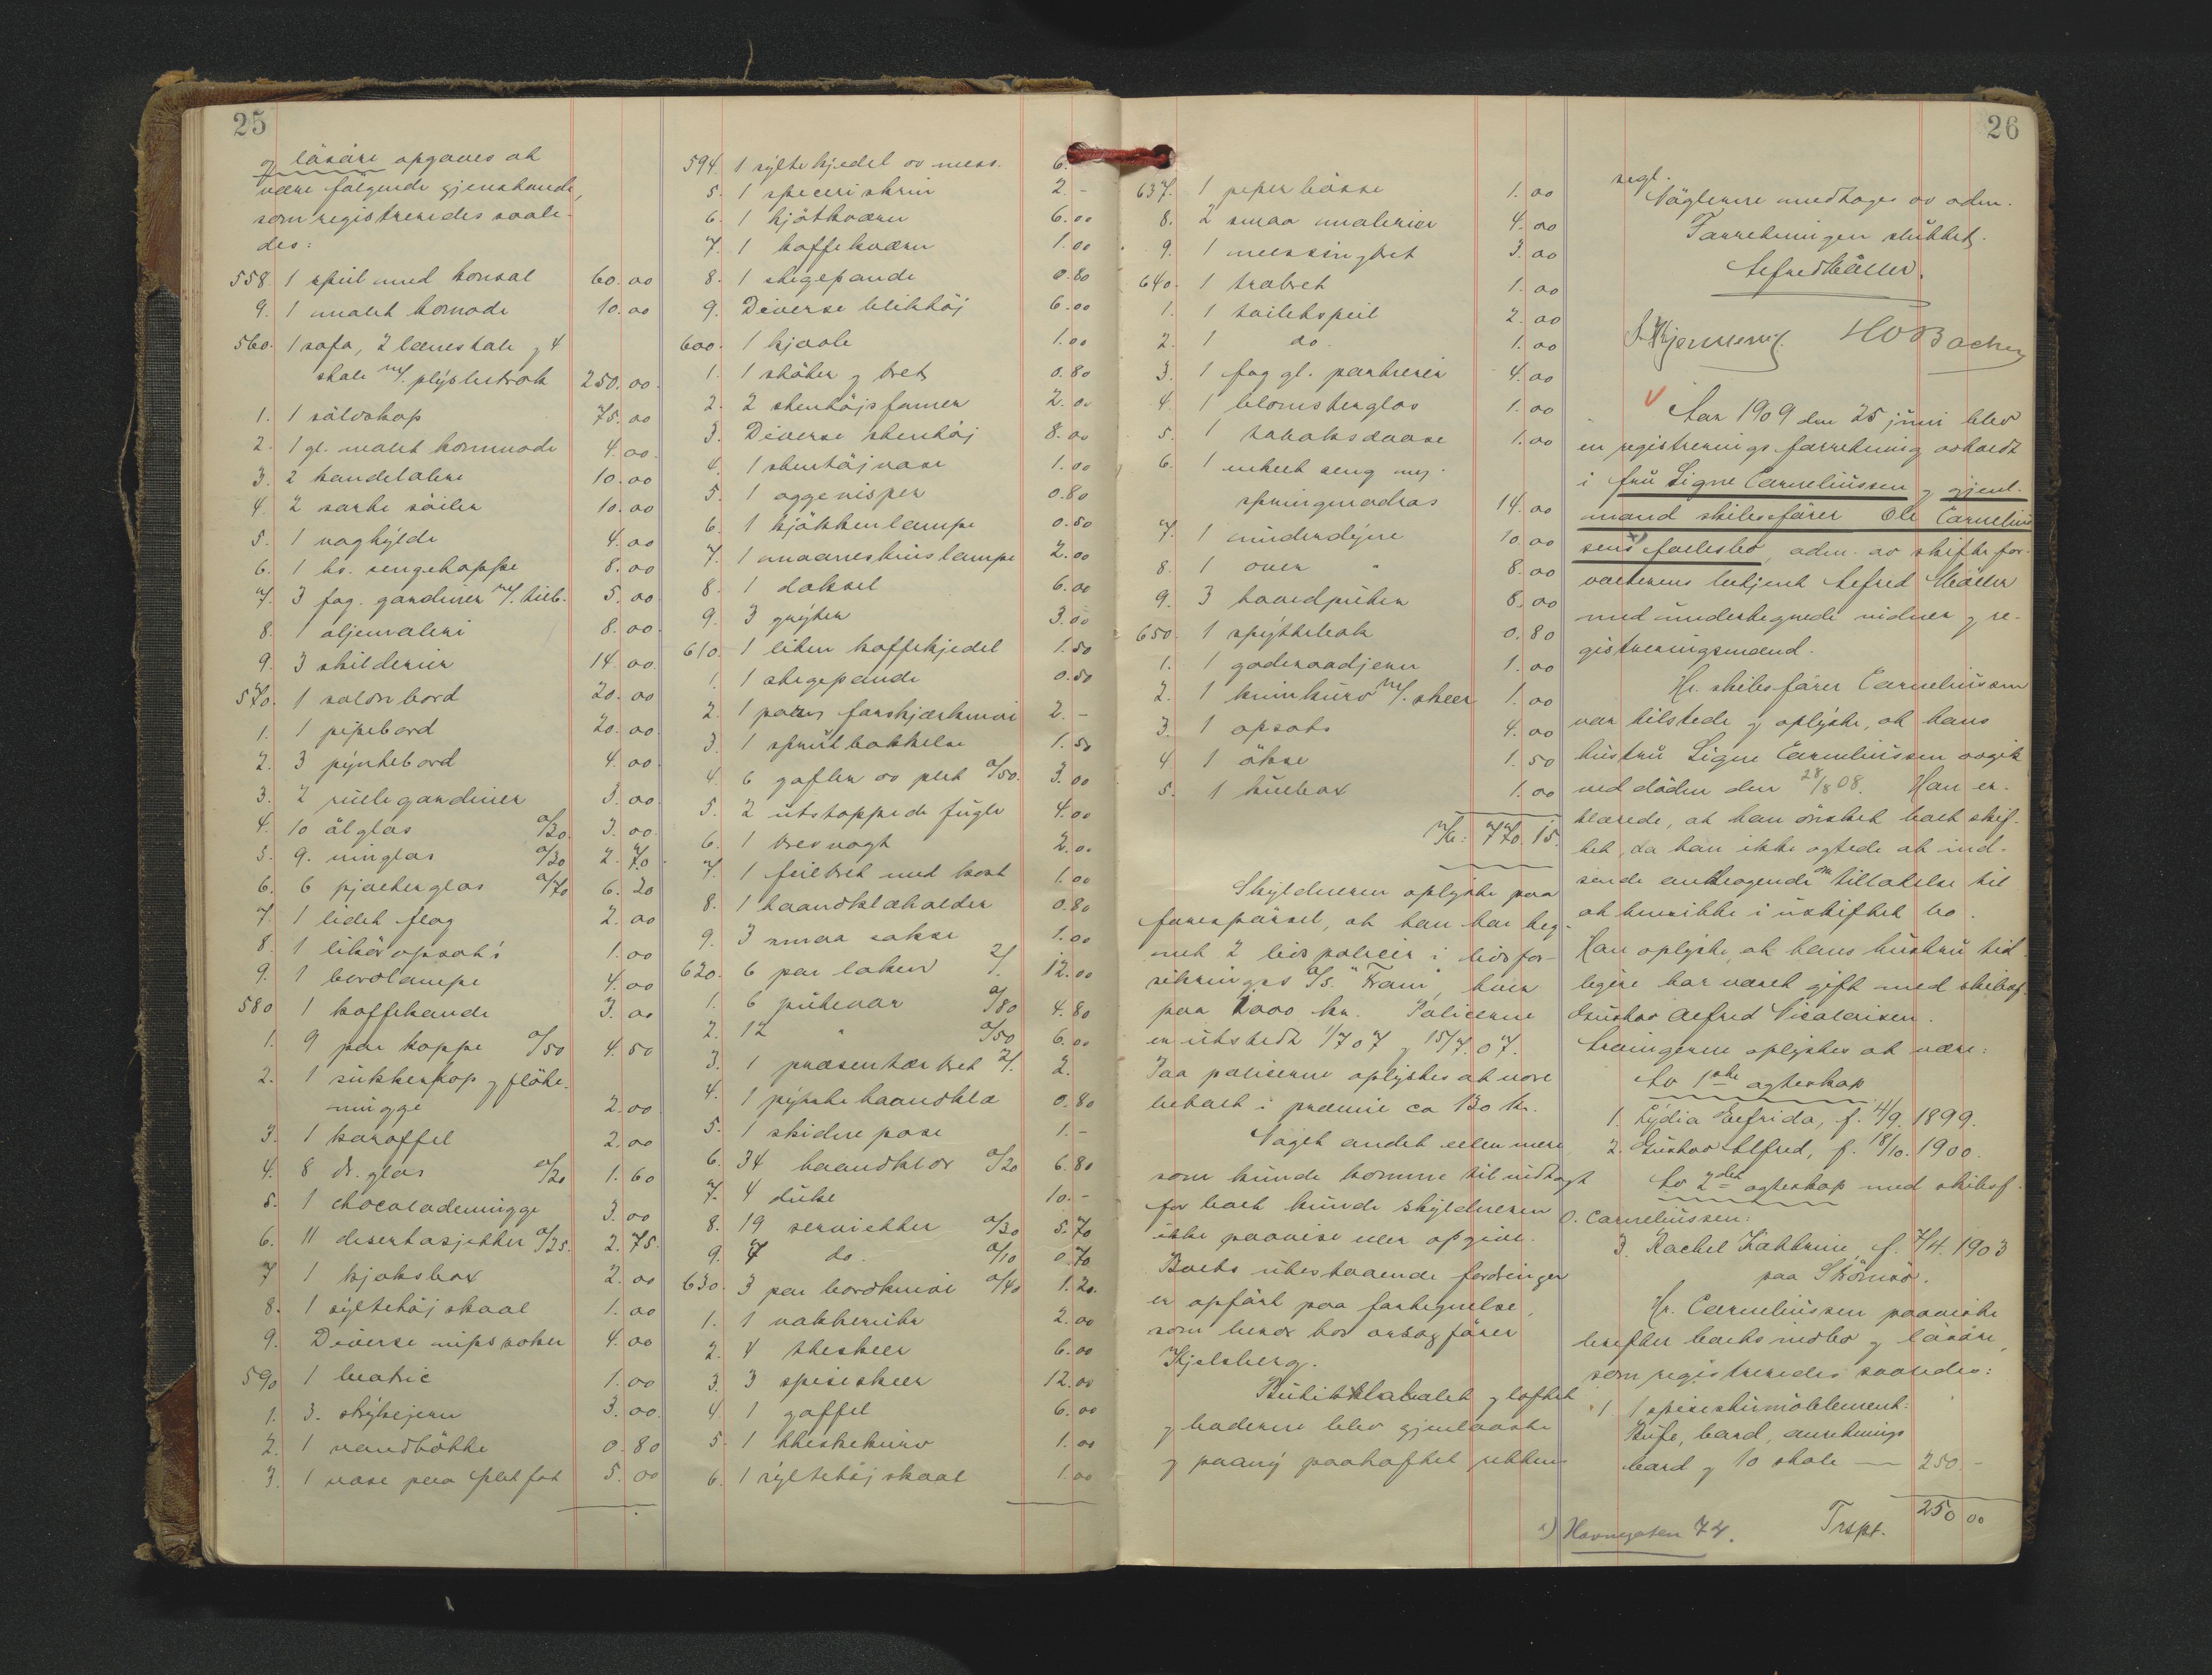 25
og lösöre opgaves at
være følgende gjenstande,
som registreredes saale-
des:
558. 1 speil med konsol 60.00
9. 1 malet komode 10.00
560. 1 sofa, 2 lænestole og 4
stole m/. plyshetræk 250.00.
1. 1 sölvskap 75.00
2. 1 gl. malet kommode 4.00.
3. 2 kandelabre 10.00
4. 2 sorte söiler 10.00
5. 1 væghylde 4.00
6. 1 hv. sengeteppe 8.00
7. 3 fag. gardiner m/. tilb. 5.00
8. 1 oljemaleri 8.00
9. 3 skilderier 14.00.
570. 1 salonbord 20.00
1. 1 pipebord 20.00
2. 3 pyntebord 4.00
3. 2 rullegardiner 3.00
4. 10 ölglas a/30. 3.00
5. 9. vinglas a/30 2.70
6. 6 pjolterglas a/70 6.20
7. 1 litet flag 2.00
8. 1 liköropsats 1.00
9. 1 bordlampe 4.00
580 1 kaffekande 3.00
1. 9 par koppe a/50 4.50
2. 1 sukkerkop og flöte-
mugge 2.00
3. 1 karaffel 2.00
4. 8 dr. glas a/20 1.60
5. 1 chocolademugge 3.00
6. 11 desertasjetter a/25. 2.75.
7 1 kjaksbox 2.00
8. 1 syltetöjskaal 1.00
9. Diverse nipssaker 4.00
590 1 1.00
1. 3. strykejern 3.00.
2. 1 vandbötte 0.80
3. 1 vase paa plet fot 5.00
594. 1 syltekjedel av mess. 6.
5. 1 speceriskrin 2.-
6. 1 kjötkværn 6.00
7. 1 kaffekværn 1.00
8. 1 stegepande 0.80
9. Diverse bliktöj 6.00
600. 1 kjaale 1.00
1. 1 og bret 0.80
2. 2 stentöjsformer 2.00
3. Diverse stentöj 8.00
4. 1 stentöjvase 1.00
5. 1 eggevisper 0.80
6. 1 kjökkenlampe 0.50
7. 1 maaneskinslampe 2.00
8. 1 6.00
9. 3 gryter 3.00
610. 1 liten kaffekjedel 1.50
1. 1 stegepande 0.50
2. 1 par forskjærkniv 2.-
3. 1 sprutbakkelse 1.50
4. 6 gafler av plet a/50. 3.00
5. 2 utstoppede fugle 4.00
6. 1 brevvegt 2.00
7. 1 feiebret med kost 1.00
8. 1 haandklæholder 0.80
9. 3 smaa sakse 1.00
620. 6 par laken 2/. 12.00
1. 6 putevar a/80 4.80
2. 12 " a/50 6.00
3. 1 presenterbret 2/. 2.
4. 1 pyntehaandklæ 0.80
5. 1 skidne pose 1.-
6. 34 haandklær a/20 6.80
7. 4 duke 10.-
8. 19 servietter a/30 5.70
9. 7 do. a/10 0.70
630. 3 par bordkniv a/40 1.20.
1. 1 vækkerur 2.00
2. 4 theskeer 6.00
3. 3 spiseskeer 12.00
4. 1 gaffel 6.00
5. 1 kurv 1.00
6. 1 syltetöjskaal 1.00
26
637. 1 peperbösse 1.00
8. 2 smaa malerier 4.00
9. 1 messingbret 3.00
640. 1 træbret 1.00
1. 1 toiletspeil 2.00
2. 1 do. 1.00
3. 1 fag gl. portierer 4.00
4. 1 blomsterglas 1.00
5. 1 tobaksdaase 1.00
6. 1 enkelt seng m/.
springmadras 14.00
7. 1 underdyne 10.00
8. 1 over " 8.00
9. 3 hovedputer 8.00
650. 1 spyttebak 0.80
1. 1 goderaadjern 1.00
2. 1 m/. skeer 1.00
3. 1 opsats 4.00
4 1 ökse 1.50
5. 1 1.00
Kr: 770.15.
Skyldneren oplyste paa
forespörsel, at han har teg-
net 2 livspolicer i livsfor-
sikrings A/s. "Fram", hver
paa 1000 kr. Policerne
er utstedt 1/7 07 og 15/7. 07.
Paa policerne oplystes at være
betalt i præmie ca 130 kr.
Noget andet eller mere
som kunde komme til indtægt
for boet kunde skyldneren
ikke paavise eller opgive.
Boets utestaaende fordringer
er opfört paa fortegnelse,
som beror hos orsagförer
Kjelsberg.
Butiklokalet og loftet
og boderne blev gjenlaaste
og paany paaheftet rettens
segl.
Nöglerne medtages av adm.
Forretningen sluttet.
Alfred Möller.
HO Backer
Aar 1909 den 25 juni blev
en registrerings forretning avholdt
i fru Signe Corneliussen og gjenl.
mand skibsförer Ole Cornelius
sens1) fællesbo, adm. av skifte for-
valterens betjent Alfred Möller
med undertegnede vidner og re-
gistreringsmænd.
Hr. skibsförer Corneliussen
var tilstede og oplyste, at hans
hustru Signe Corneliussen avgik
ved döden den 28/8 08. Han er-
klærede, at han önsket boet skif-
tet, da han ikke agtede at ind-
sende andragende om tillatelse til
at hensitte i uskiftet bo.
Han oplyste, at hans hustru tid-
ligere har været gift med skibsf.
Gustav Alfred Nicolaisen.
Arvingerne oplystes at være:
Av 1ste ægteskap
1. Lydia Elfrida, f. 4/9. 1899.
2. Gustav Alfred, f. 18/10. 1900.
Av 2det ægteskap med skibsf.
O. Corneliussen:
3. Rachel Kathrine, f. 7/4. 1903
paa Strömsö.
Hr. Corneliussen paaviste
derefter boets indbo og lösöre,
som registreredes saaledes:
1. 1 spisestumöblement:
Bufe, bord, anretnings
bord og 10 stole — 250.-
Trspt. 250 00
1) Havnegaten 74.